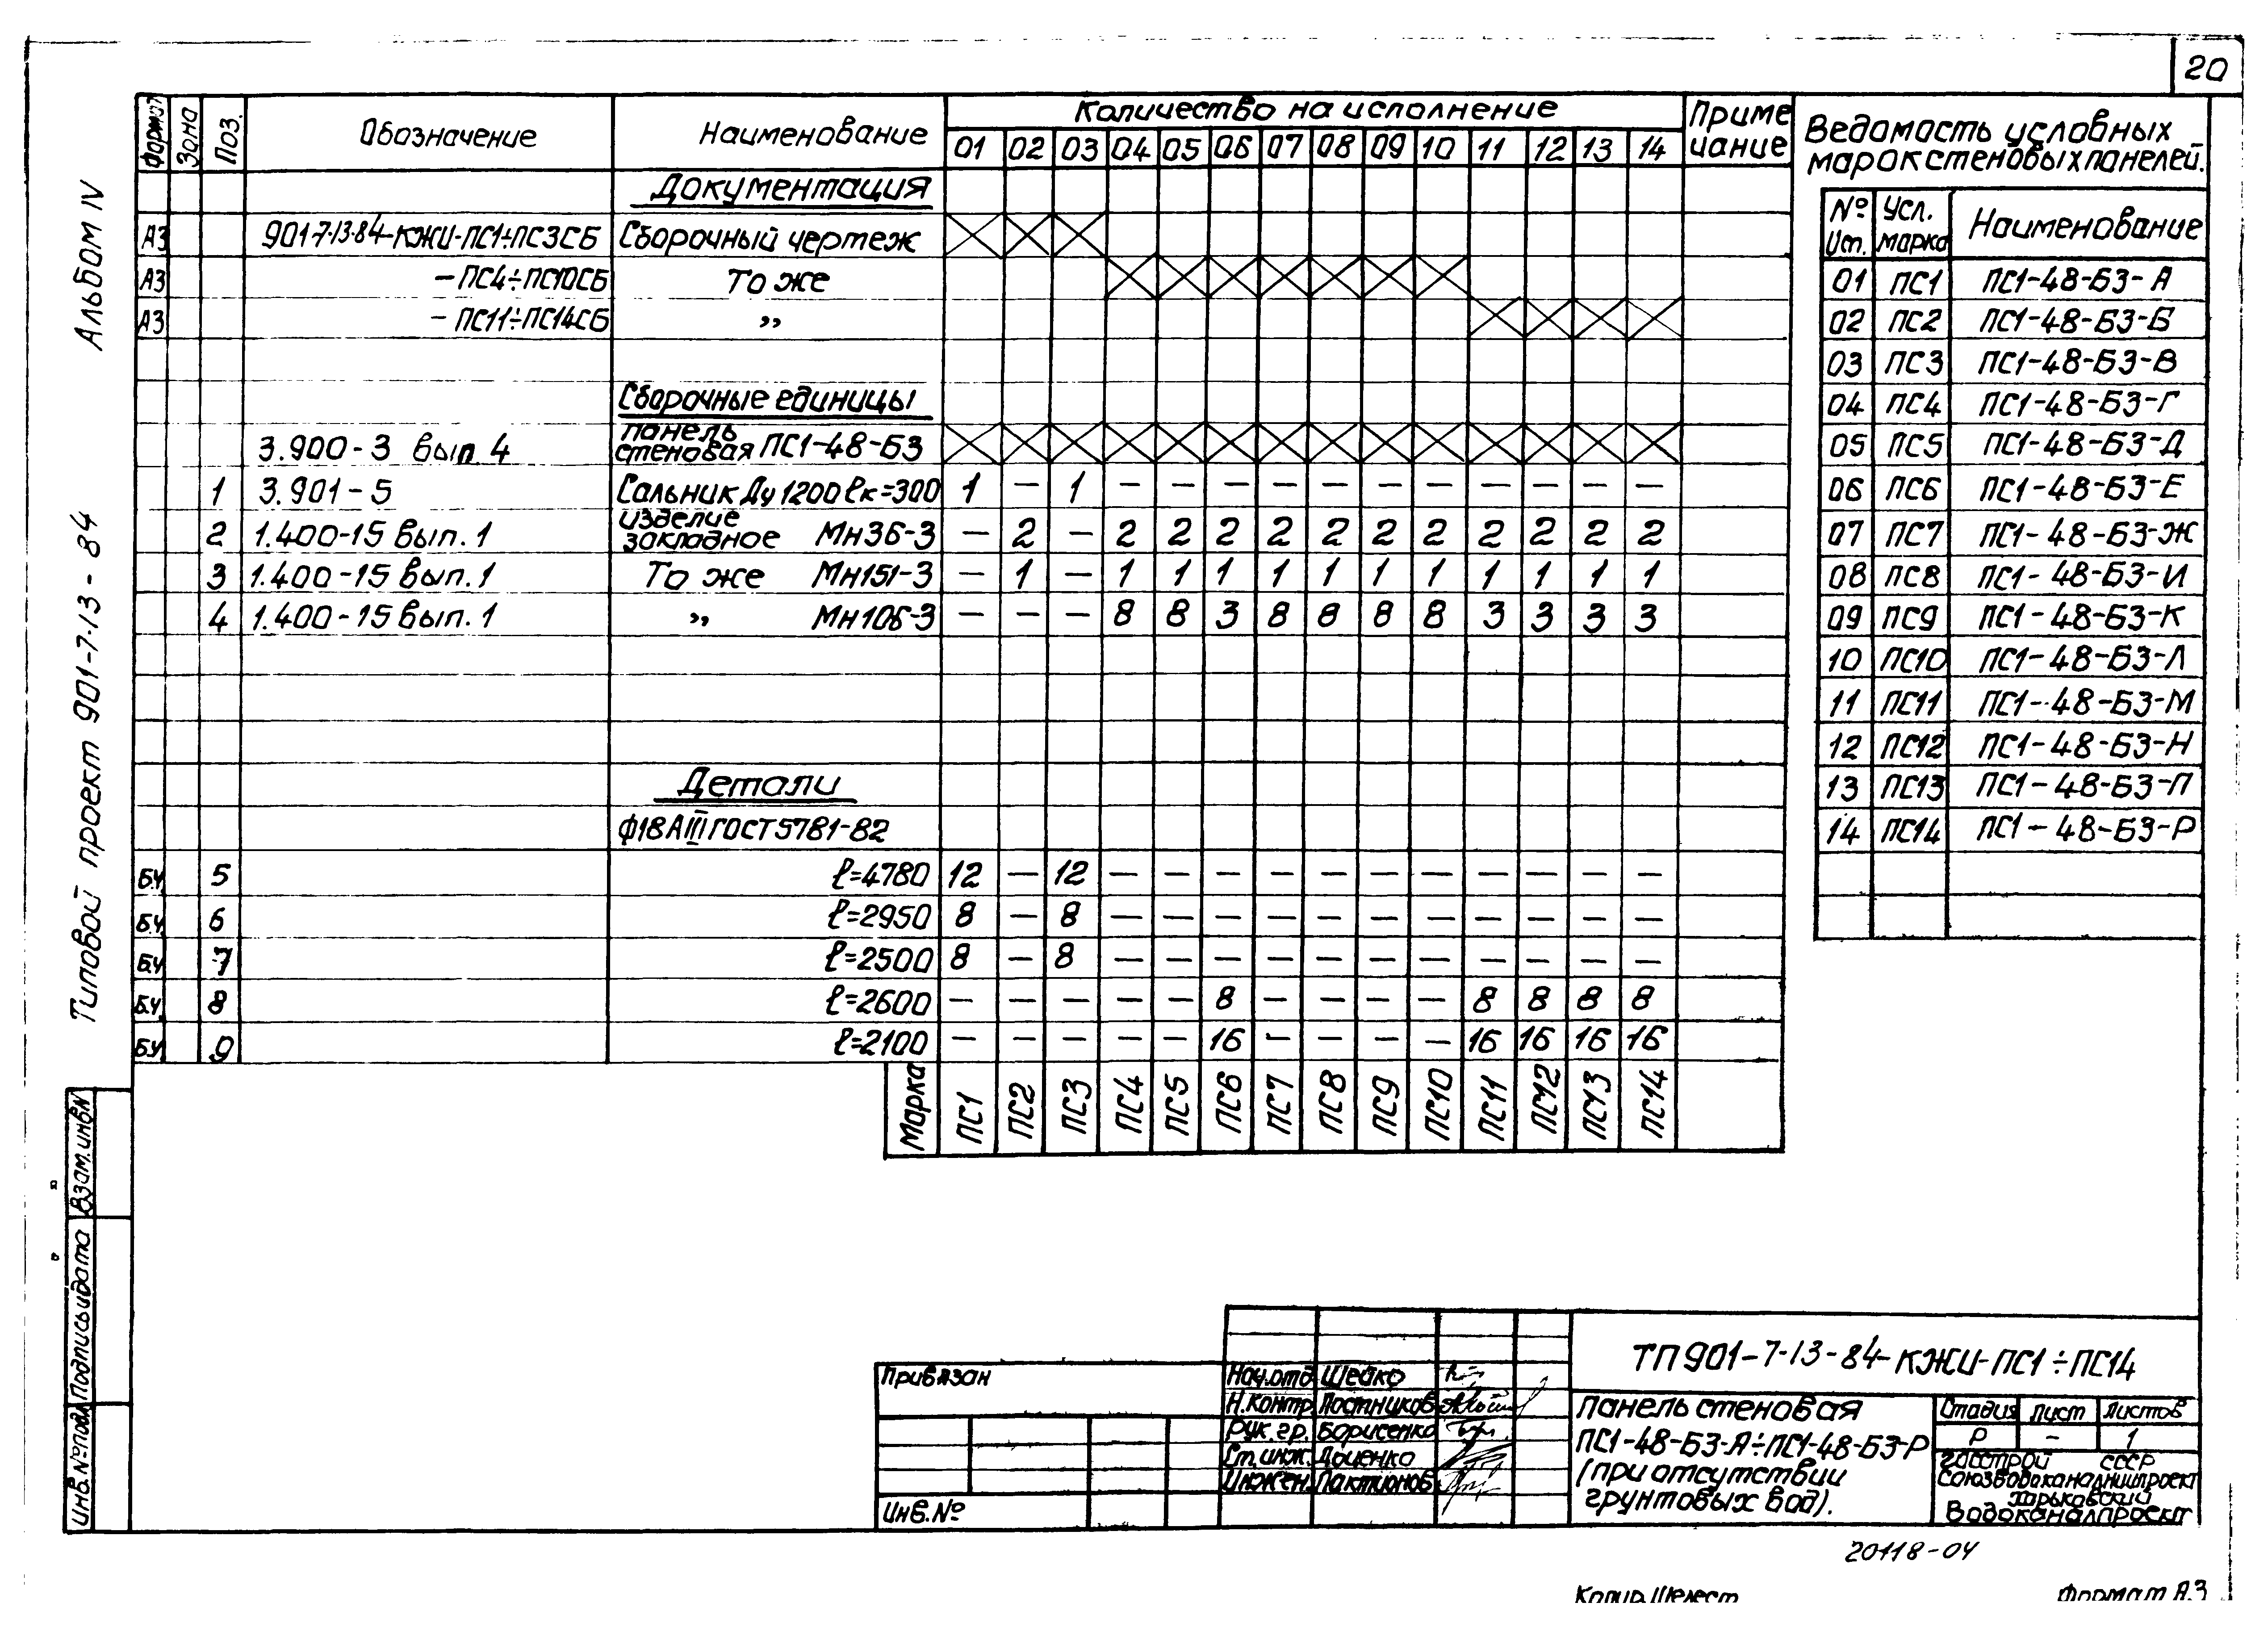 20
Альбом IV
Типовой проект 901-7-13-84
Формат Зона Поз. Обозначение Наименование Количество на исполнение Примечание
01 02 03 04 05 06 07 08 09 10 11 12 13 14
Документация
А3 901-7-13-84-КЖИ-ПС1÷ПС3СБ Сборочный чертеж
А3 -ПС4÷ПС10СБ То же
А3 -ПС11÷ПС14СБ "
Сборочные единицы
3.900-3 вып. 4 панель стеновая ПС1-48-Б3
1 3.901-5 Сальник Ду 1200 ℓк=300 1 — 1 — — — — — — — — — — —
2 1.400-15 вып. 1 изделие закладное Мн36-3 — 2 — 2 2 2 2 2 2 2 2 2 2 2
3 1.400-15 вып. 1 То же Мн151-3 — 1 — 1 1 1 1 1 1 1 1 1 1 1
4 1.400-15 вып. 1 " Мн106-3 — — — 8 8 3 8 8 8 8 3 3 3 3
Детали
Ф18АIII ГОСТ 5781-82
Б.Ч 5 ℓ=4780 12 — 12 — — — — — — — — — — —
Б.Ч. 6 ℓ=2950 8 — 8 — — — — — — — — — — —
Б.Ч 7 ℓ=2500 8 — 8 — — — — — — — — — — —
Б.Ч 8 ℓ=2600 — — — — — 8 — — — — 8 8 8 8
Б.Ч 9 ℓ=2100 — — — — — 16 — — — — 16 16 16 16
Марка ПС1 ПС2 ПС3 ПС4 ПС5 ПС6 ПС7 ПС8 ПС9 ПС10 ПС11 ПС12 ПС13 ПС14
Ведомость условных
марок стеновых панелей.
№ Ис. Усл. марка Наименование
01 ПС1 ПС1-48-Б3-А
02 ПС2 ПС1-48-Б3-Б
03 ПС3 ПС1-48-Б3-В
04 ПС4 ПС1-48-Б3-Г
05 ПС5 ПС1-48-Б3-Д
06 ПС6 ПС1-48-Б3-Е
07 ПС7 ПС1-48-Б3-Ж
08 ПС8 ПС1-48-Б3-И
09 ПС9 ПС1-48-Б3-К
10 ПС10 ПС1-48-Б3-Л
11 ПС11 ПС1-48-Б3-М
12 ПС12 ПС1-48-Б3-Н
13 ПС13 ПС1-48-Б3-П
14 ПС14 ПС1-48-Б3-Р
Взам. инв.№
Подпись и дата
Инв. № подл.
Привязан
Инв. №
Нач. отд Шейко
Н. контр. Постников
Рук. гр. Борисенко
Ст. инж. Доценко
Инжен. Лактионов
ТП 901-7-13-84-КЖИ-ПС1÷ПС14
Панель стеновая
ПС1-48-Б3-А÷ПС1-48-Б3-Р
(при отсутствии
грунтовых вод).
Стадия Лист Листов
Р — 1
Госстрой СССР
Союзводоканалниипроект
Харьковский
Водоканалпроект
20118-04
Копир. Шелест Формат А3